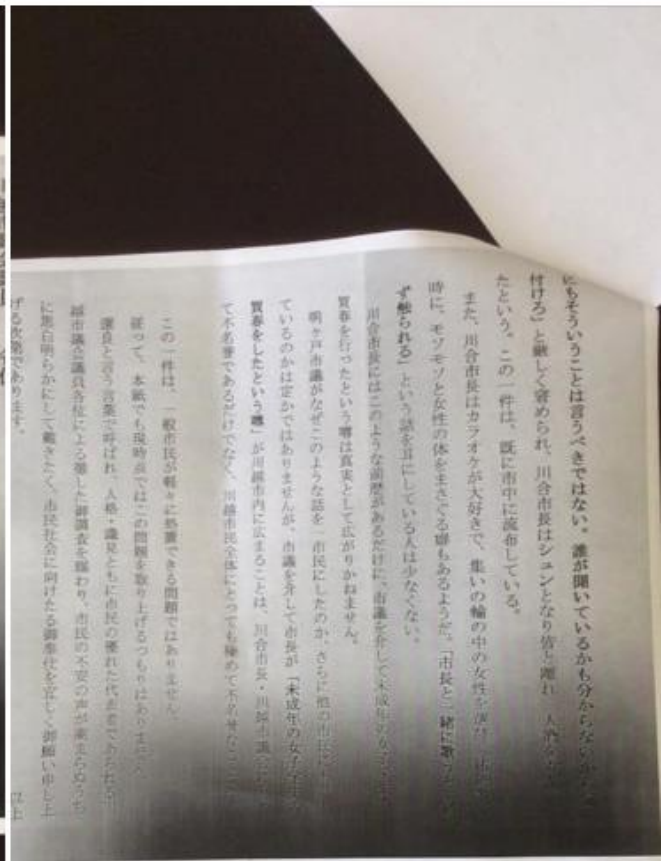 にもそういうことは言うべきではない。誰が聞いているかも分からないから
付けろ」と厳しく窘められ、川合市長はシュンとなり皆と離れ一人酒を
たという。この一件は、既に市中に流布している。
また、川合市長はカラオケが大好きで、集いの輪の中の女性を
時に、モソモソと女性の体をまさぐる癖もあるようだ。「市長と一緒に歌うと
ず触られる」という話を耳にしている人は少なくない。
川合市長にはこのような前歴があるだけに、市議を介して未成年の
買春を行ったという噂は真実として広がりかねません。
明ヶ戸市議がなぜこのような話を一市民にしたのか、さらに他の市民にも
ているのかは定かではありませんが、市議を介して市長が「未成年の女子
買春をしたという噂」が川越市内に広まることは、川合市長・川越市議会
て不名誉であるだけでなく、川越市民全体にとっても極めて不名誉なこと
この一件は、一般市民が軽々に処置できる問題ではありません。
従って、本紙でも現時点ではこの問題を取り上げるつもりはありません
選良と言う言葉で呼ばれ、人格・識見ともに市民の優れた代表者であられる
越市議会議員各位による徹した御調査を賜わり、市民の不安の声が高まらぬうち
に黒白明らかにして戴きたく、市民社会に向けたる御奉仕を宜しく御願い申し上
げる次第であります。
以上